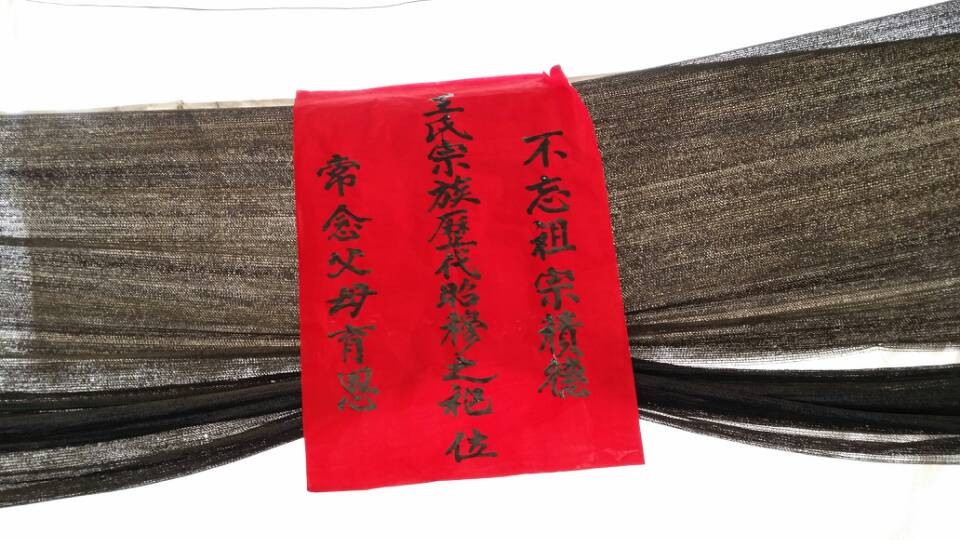 不忘祖宗積德
王氏宗族歷代昭穆之祀位
常念父母育恩